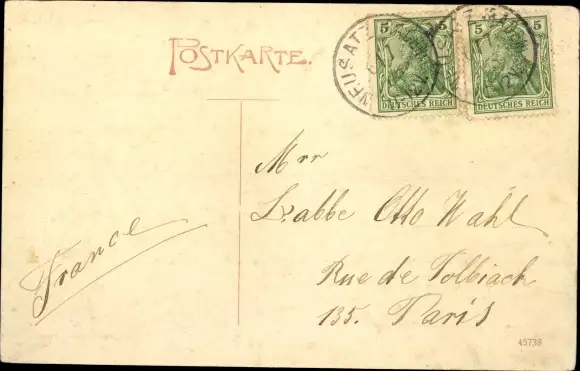 POSTKARTE.
5 5
DEUTSCHES REICH DEUTSCHES REICH
NEUSATZ
Mrr
L'abbe Otto Wahl
Rue de Tolbiach
135. Paris
France
45738